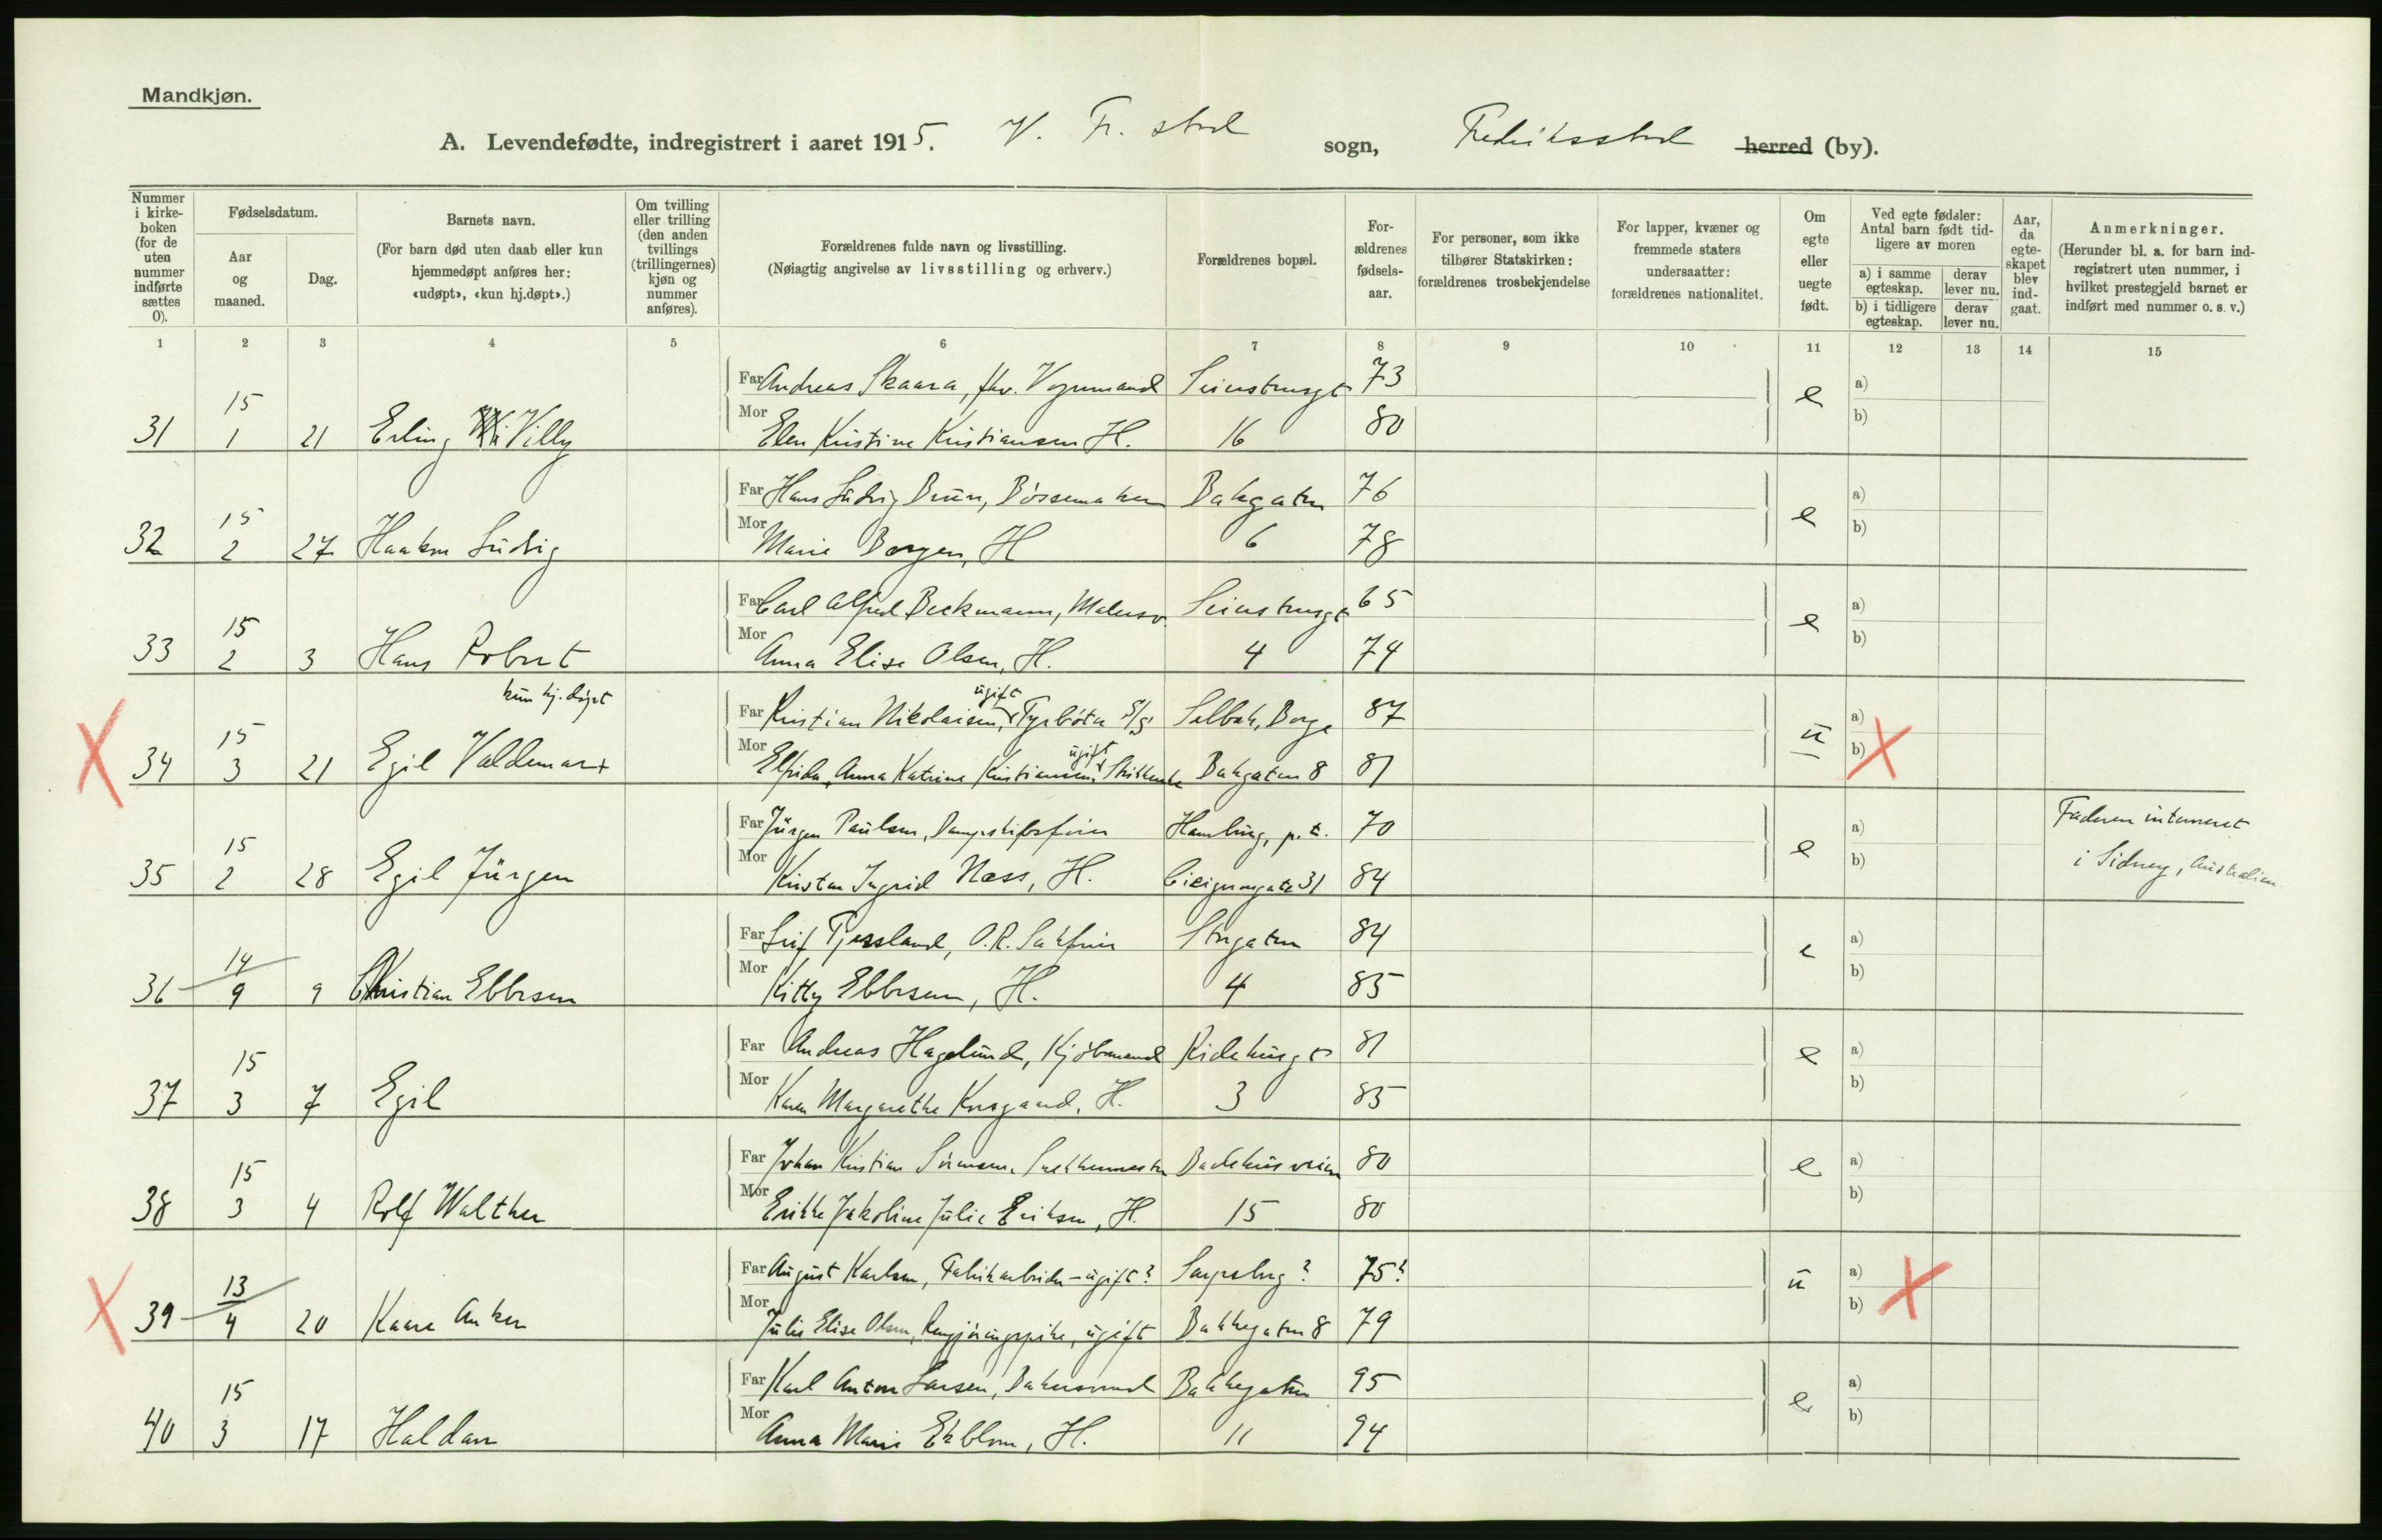 Mandkjøn.
A. Levendefødte, indregistrert i aaret 1915. V. Fr. stad sogn, Fredriksstad herred (by).
Nummer i kirkeboken (for de uten nummer indførte sættes 0).
Fødselsdatum.
Aar og maaned.
Dag.
Barnets navn.
(For barn død uten daab eller kun hjemmedøpt anføres her: «udøpt», «kun hj.døpt».)
Om tvilling eller trilling (den anden tvillings (trillingernes) kjøn og nummer anføres).
Forældrenes fulde navn og livsstilling.
(Nøiagtig angivelse av livsstilling og erhverv.)
Forældrenes bopæl.
Forældrenes fødselsaar.
For personer, som ikke tilhører Statskirken: forældrenes trosbekjendelse
For lapper, kvæner og fremmede staters undersaatter: forældrenes nationalitet.
Om egte eller uegte født.
Ved egte fødsler: Antal barn født tidligere av moren
a) i samme egteskap. derav lever nu.
b) i tidligere egteskap. derav lever nu.
Aar, da egteskapet blev indgaat.
Anmerkninger.
(Herunder bl. a. for barn indregistrert uten nummer, i hvilket prestegjeld barnet er indført med nummer o. s. v.)
1 2 3 4 5 6 7 8 9 10 11 12 13 14 15
Far Andreas Skaara, fhv. Vognmand 73
31 15 1 21 Erling Villy e a) b)
Mor Elen Kristine Kristiansen H. 16 80
Far Hans Ludvig Bruun, Børssemaker Bakgaten 76
32 15 2 27 Haakon Ludvig e a) b)
Mor Marie Borgen, H 6 78
Far Carl Alfred Beckmann, Malersv. 65
33 15 2 3 Hans Robert e a) b)
Mor Anna Elise Olsen, H. 4 74
kun hj. døpt
Far Kristian Nikolaisen, ugift Fyrbøter S/S Selbak, Borge 87
34 15 3 21 Egil Valdemar + u a) b)
Mor Elfrida Anna Katrine Kristiansen, ugift Bakgaten 8 81
Far Jürgen Paulsen, Dampskibsfører Hamburg, p.t. 70 Faderen interneret
35 15 2 28 Egil Jürgen e a) b) i Sidney, Australien.
Mor Kirsten Ingrid Næss, H. Cicignongate 31 84
Far Leif Tjessland, O.R. Sakfører Storgaten 84
36 14 9 9 Christian Ebbesen e a) b)
Mor Kitty Ebbesen, H. 4 85
Far Andreas Hagelund, Kjøbmand Ridehusgt 81
37 15 3 7 Egil e a) b)
Mor Karen Margarethe Korsgaard, H. 3 85
Far Johan Kristian Sørensen, Snekkermester Badehusveien 80
38 15 3 4 Rolf Walther e a) b)
Mor Erikke Jakoline Julie Eriksen, H. 15 80
Far August Karlsen, Fabrikarbeider - ugift? Sarpsborg? 75?
39 13 4 20 Kaare Anker u a) b)
Mor Julie Elise Olsen, Rengjøringspike, ugift Bakkegaten 8 79
Far Karl Anton Larsen, Bakersvend Bakkegaten 95
40 15 3 17 Haldan e a) b)
Mor Anna Marie Ekblom, H. 11 94